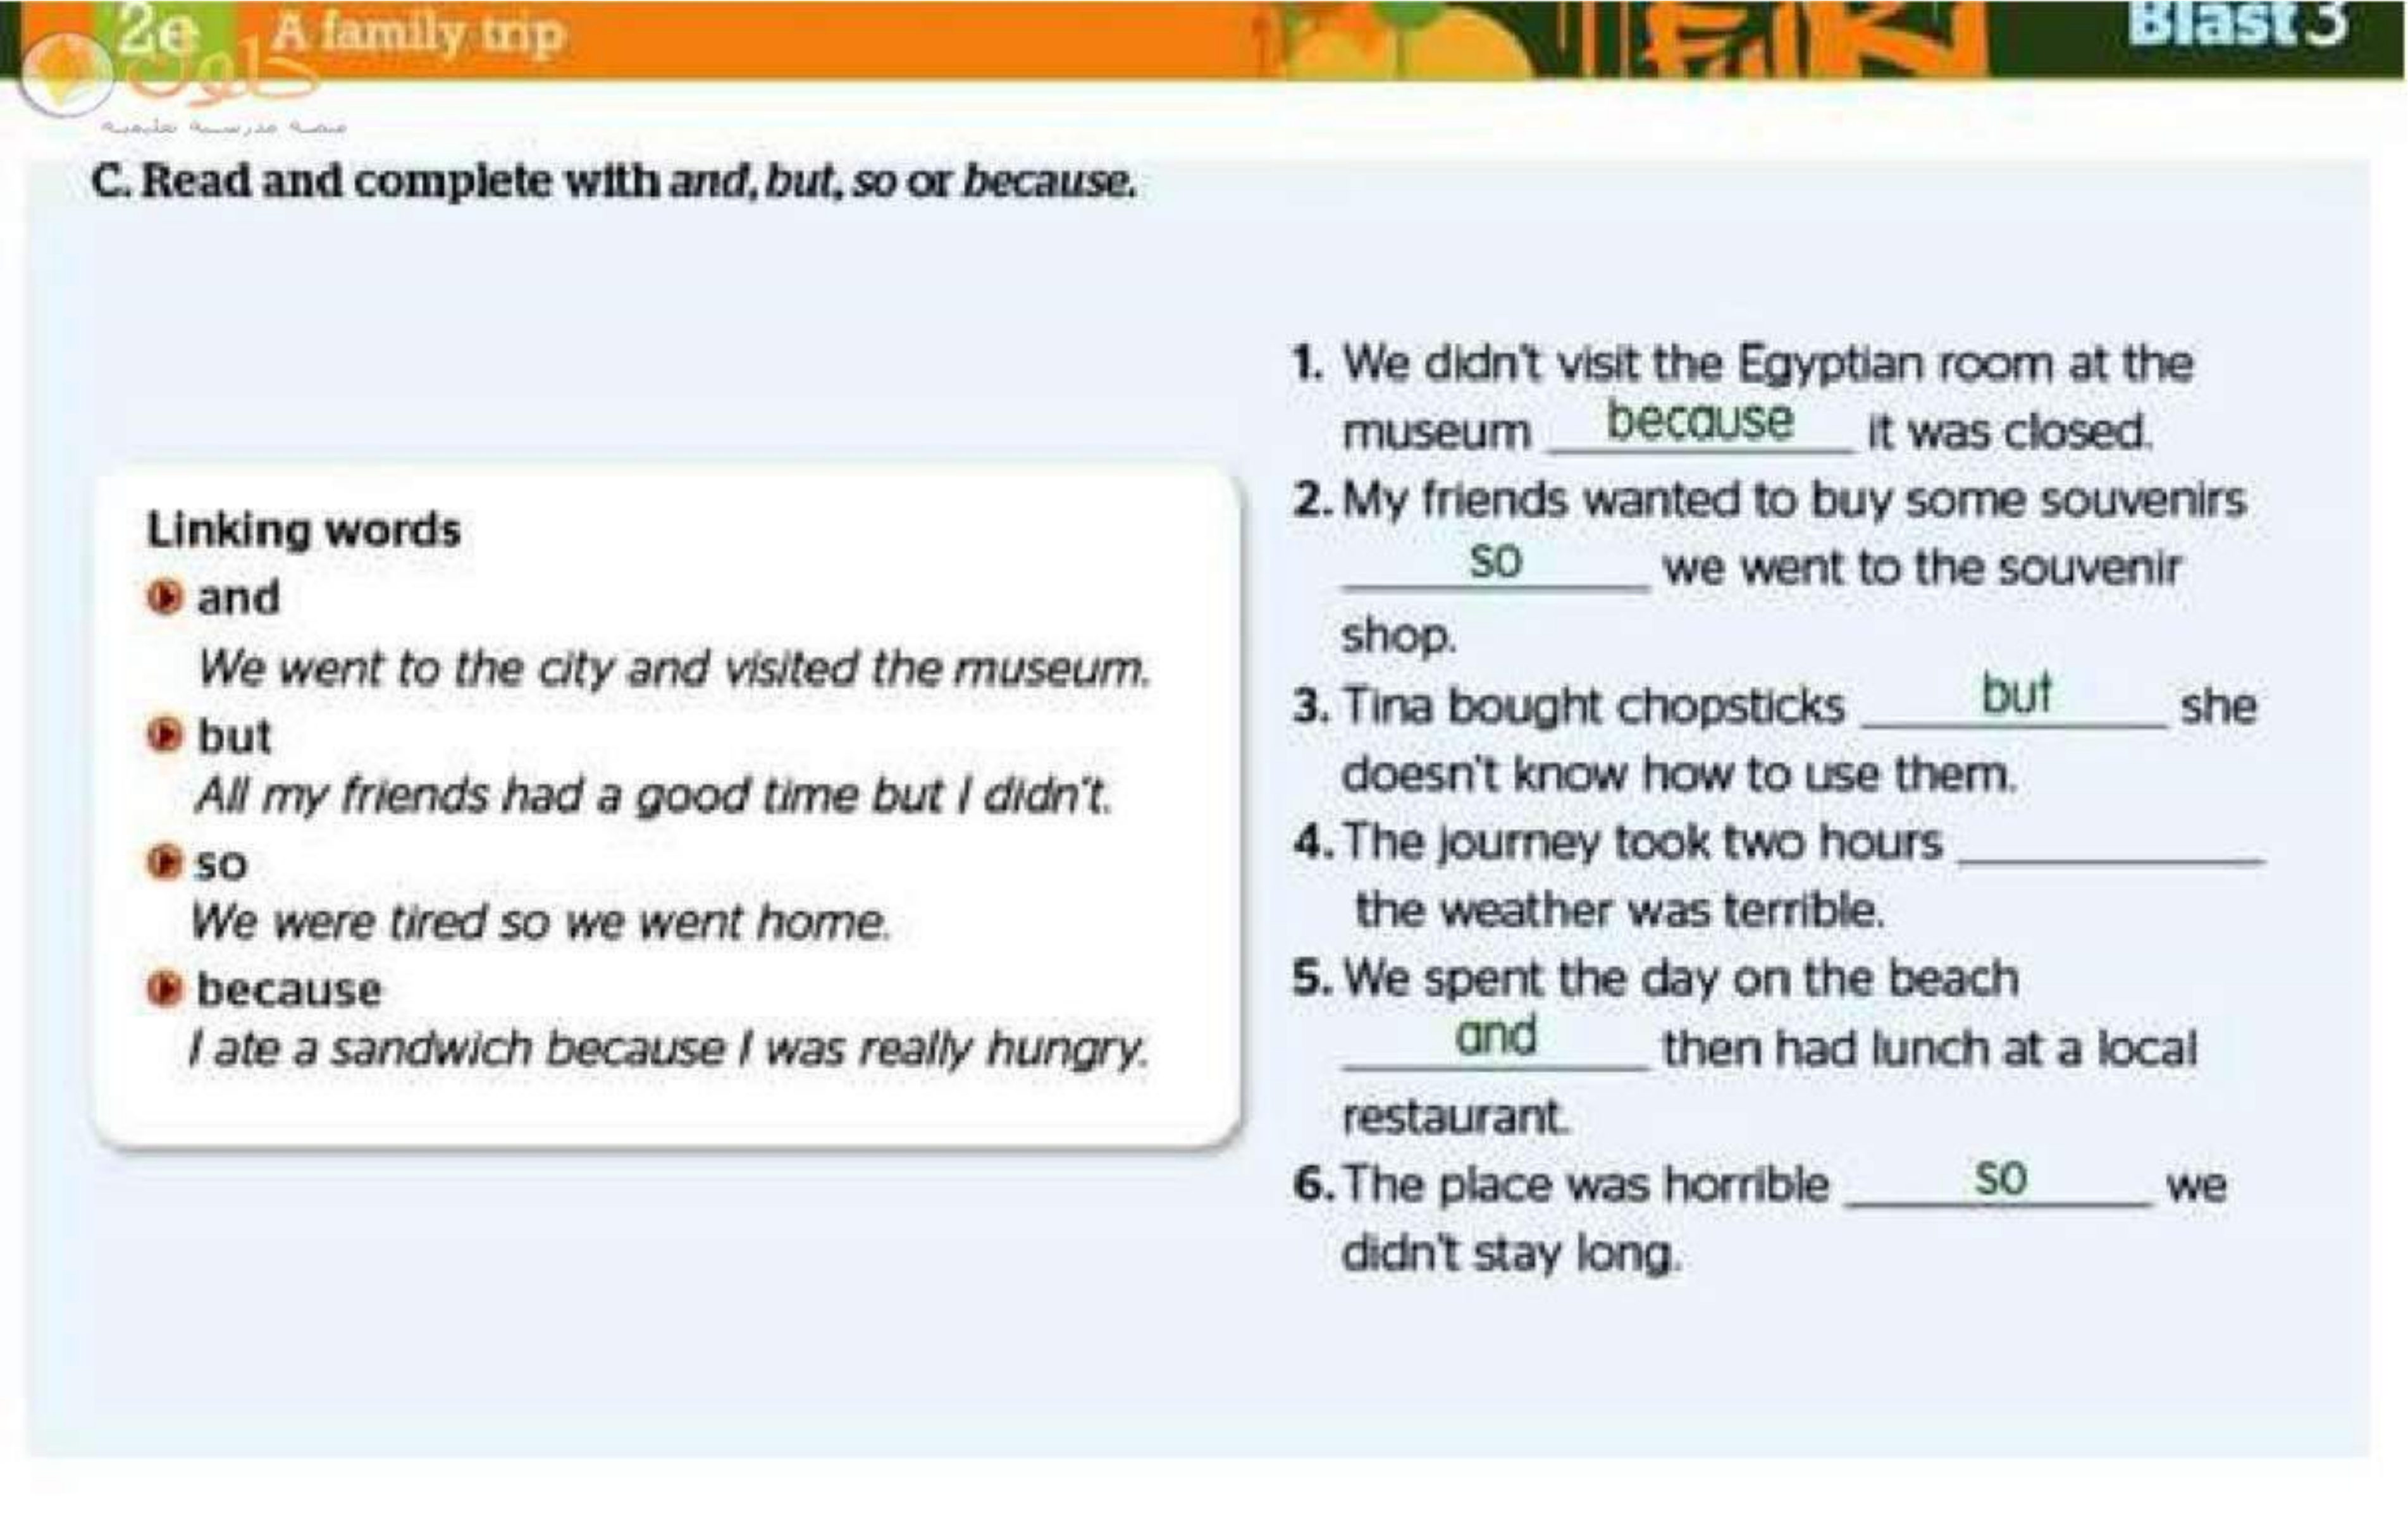 2e A family trip
Blast 3
حلول
منصة مدرستي تعليمية
C. Read and complete with and, but, so or because.
Linking words
and
We went to the city and visited the museum.
but
All my friends had a good time but I didn't.
so
We were tired so we went home.
because
I ate a sandwich because I was really hungry.
1. We didn't visit the Egyptian room at the
museum because it was closed.
2. My friends wanted to buy some souvenirs
so we went to the souvenir
shop.
3. Tina bought chopsticks but she
doesn't know how to use them.
4. The journey took two hours
the weather was terrible.
5. We spent the day on the beach
and then had lunch at a local
restaurant.
6. The place was horrible so we
didn't stay long.